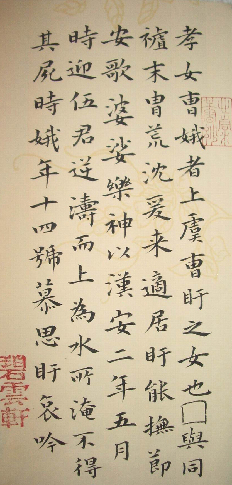 孝女曹娥者上虞曹盱之女也□與同
祲末胄荒沈爰来適居盱能撫節
安歌婆娑樂神以漢安二年五月
時迎伍君逆濤而上為水所淹不得
其屍時娥年十四號慕思盱哀吟
碧雲軒